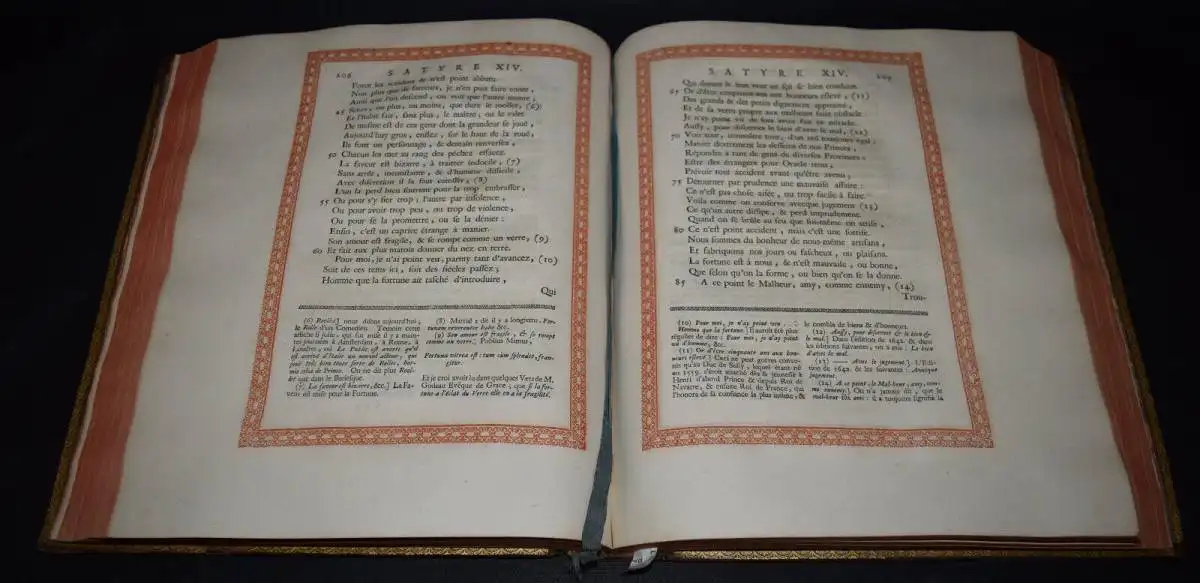 SATYRE XIV.
Force les accident de n'est point abbatu.
Non plus que de farceurs, je n'en puis faire conte,
Ainsi que l'un descend, on voit que l'autre monte,
Selon, ou plus, ou moins, que dure le roollet, (6)
Et l'habit fait, sans plus, le maistre, ou le valet
De mesme est de ces gens dont la grandeur se jouë,
Aujourd'huy gros, enflez, sur le haut de la rouë,
Ils font un personnage, & demain renversez,
50 Chacun les met au rang des péchez effacez.
La faveur est bizarre, à traitter indocile, (7)
Sans arrêt, inconstante, & d'humeur difficile,
Avec discretion il la faut caresser, (8)
L'un la perd bien souvent pour la trop embrasser,
55 Ou pour s'y fier trop; l'autre par insolence,
Ou pour avoir trop peu, ou trop de violence,
Ou pour se la promettre, ou se la dénier:
Enfin, c'est un caprice étrange à manier.
Son amour est fragile, & se rompt comme un verre, (9)
60 Et fait aux plus matois donner du nez en terre.
Pour moi, je n'ai point veu, parmy tant d'avancez, (10)
Soit de ces tems ici, soit des siecles passez;
Homme que la fortune ait tasché d'introduire,
Qui
(6) Roollet] nous disons aujourd'hui,
le Rolle d'un Comedien.
(7) La faveur est bizarre, &c.] La Fa-
veur est mise pour la Fortune.
(9) Son amour est fragile, & se rompt
comme un verre.] Publius Mimus,
Fortuna vitrea est: tum cùm splendet, fran-
gitur.
Et je croi avoir lû dans quelques Vers de M.
Godeau Evêque de Grace; que si la for-
tune a l'éclat du Verre elle en a la fragilité.
SATYRE XIV.
Qui durant le bon vent ait sçû se bien conduire.
65 Or d'être cinquante ans aux honneurs eslevé, (11)
Des grands & des petits dignement approuvé,
Et de sa vertu propre aux malheurs faire obstacle,
Je n'ay point veu de sots avoir fait ce miracle.
Aussy, pour discerner le bien d'avec le mal, (12)
70 Voir tout, connoître tout, d'un œil toujours égal:
Manier dextrement les desseins de nos Princes,
Répondre à tant de gens de diverses Provinces:
Estre des étrangers pour Oracle tenu,
Prévoir tout accident avant qu'être avenu;
75 Détourner par prudence une mauvaise affaire:
Ce n'est pas chose aisée, ou trop facile à faire.
Voila comme on conserve avecque jugement (13)
Ce qu'un autre dissipe, & perd imprudemment.
Quand on se brûle au feu que soi-même on attise,
80 Ce n'est point accident, mais c'est une sottise.
Nous sommes du bonheur de nous-même artisans,
Et fabriquons nos jours ou fascheux, ou plaisans.
La fortune est à nous, & n'est mauvaise, ou bonne,
Que selon qu'on la forme, ou bien qu'on se la donne.
85 A ce point le Malheur, amy, comme ennemy, (14)
Trou-
(10) Pour moi, je n'ay point veu
Homme que la fortune] Il auroit été plus
régulier de dire: Pour moi, je n'ay point
vû d'homme, &c.
(11) Or d'être cinquante ans aux hon-
neurs eslevé] Ceci ne peut guères conve-
nir qu'au Duc de Sully, lequel étant né
en 1559. s'étoit attaché dès sa jeunesse à
Henri d'abord Prince & depuis Roi de
Navarre, & ensuite Roi de France, qui
l'honora de sa confiance la plus intime, &
le combla de biens & d'honneurs.
(12) Aussy, pour discerner & le bien &
le mal.] Dans l'édition de 1642. & dans
les éditions suivantes, on a mis: Le bien
d'avec le mal.
(13) — Avec le jugement.] L'Edi-
tion de 1642. & les suivantes: Avecque
jugement.
(14) A ce point, le Mal-heur, amy, com-
me ennemy.] On n'a jamais dit, que le
mal-heur fût ami: il a toujours signifié la